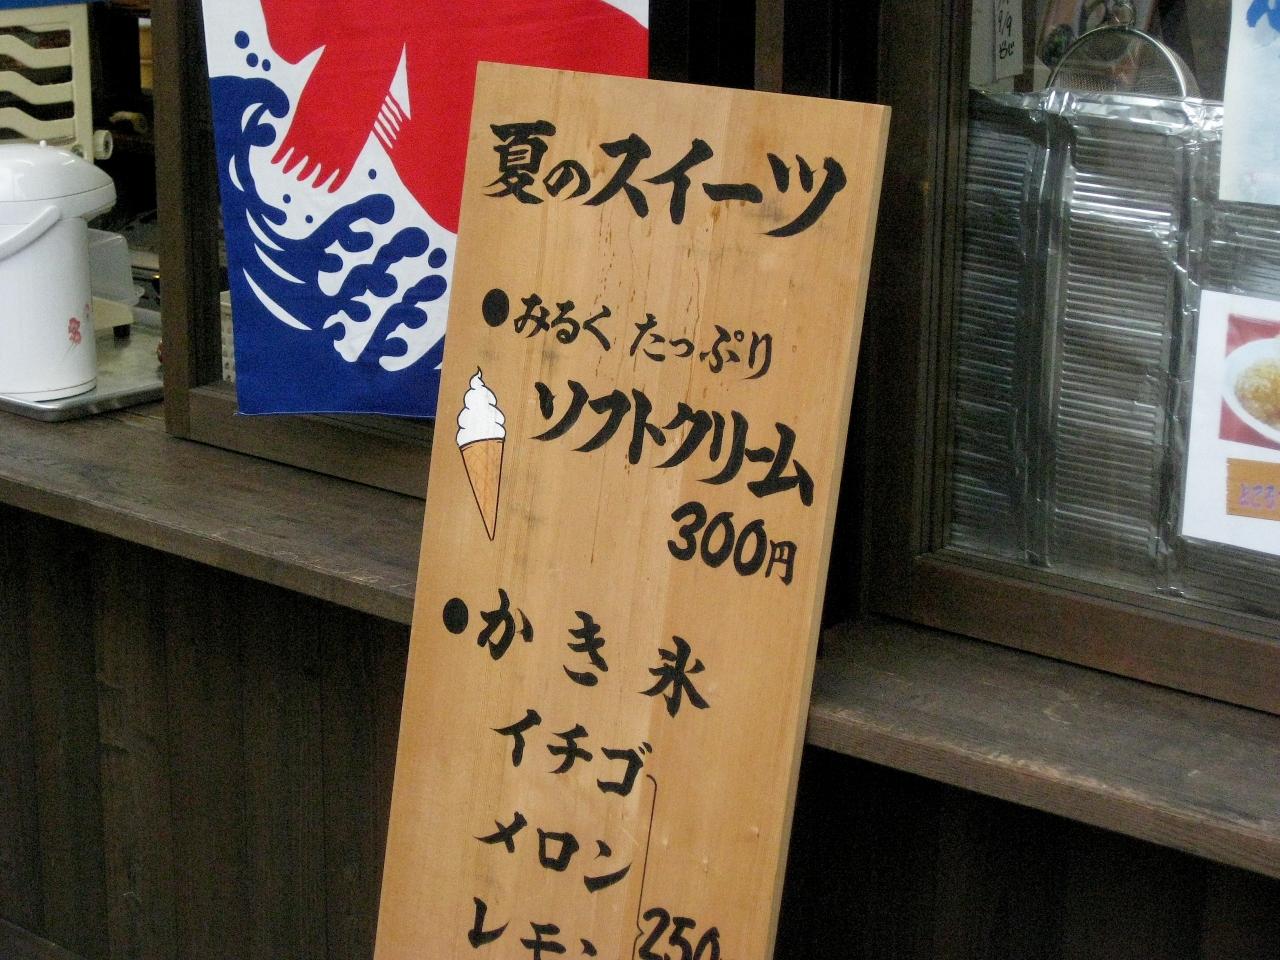 夏のスイーツ
●みるく たっぷり
ソフトクリーム
300円
●かき氷
イチゴ
メロン
レモン
250